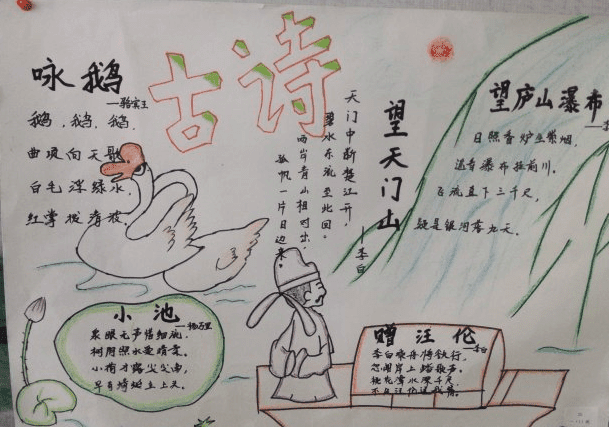 古诗
咏鹅
—骆宾王
鹅,鹅,鹅,
曲项向天歌。
白毛浮绿水,
红掌拨清波。
望天门山
—李白
天门中断楚江开,
碧水东流至此回。
两岸青山相对出,
孤帆一片日边来。
望庐山瀑布
—李
日照香炉生紫烟,
遥看瀑布挂前川。
飞流直下三千尺,
疑是银河落九天。
小池
—杨万里
泉眼无声惜细流,
树阴照水爱晴柔。
小荷才露尖尖角,
早有蜻蜓立上头。
赠汪伦
—李白
李白乘舟将欲行,
忽闻岸上踏歌声。
桃花潭水深千尺,
不及汪伦送我情。